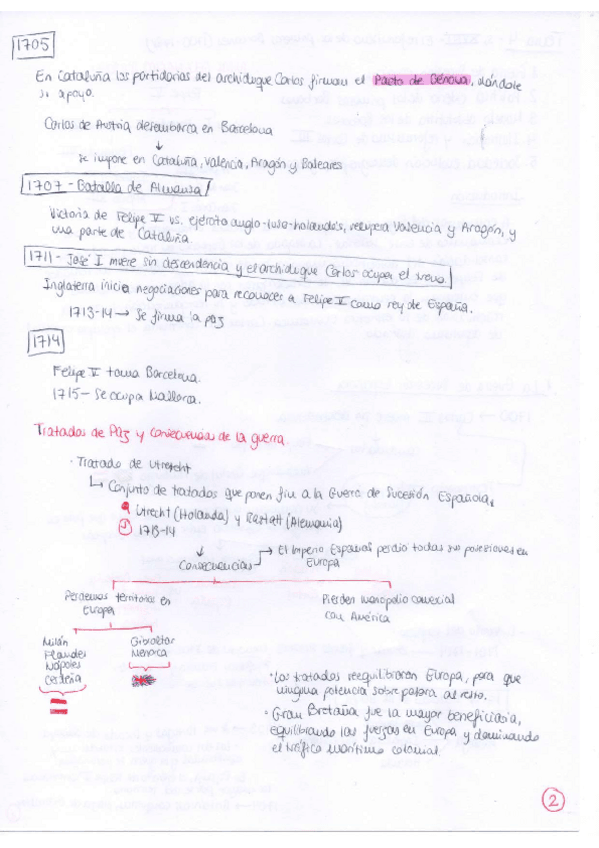 1705
En Cataluña los partidarios del archiduque Carlos firman el Pacto de Génova, dándole
su apoyo.
Carlos de Austria desembarca en Barcelona
↓
Se impone en Cataluña, Valencia, Aragón y Baleares
1707 - Batalla de Almansa
Victoria de Felipe V vs. ejército anglo-luso-holandés, recupera Valencia y Aragón, y
una parte de Cataluña.
1711 - José I muere sin descendencia y el archiduque Carlos ocupa el trono.
Inglaterra inicia negociaciones para reconocer a Felipe V como rey de España.
1713-14 → Se firma la paz
1714
Felipe V toma Barcelona.
1715 - Se ocupa Mallorca.
Tratados de Paz y consecuencias de la guerra.
· Tratado de Utrecht
↳ Conjunto de tratados que ponen fin a la Guerra de Sucesión Española,
Utrecht (Holanda) y Rastatt (Alemania)
1713-14
Consecuencias → El Imperio Español perdió todas sus posesiones en
Europa
Perdemos territorios en
Europa
Pierden monopolio comercial
con América
Milán
Flandes
Nápoles
Cerdeña
Gibraltar
Menorca
· Los tratados reequilibraron Europa, para que
ninguna potencia sobrepasara al resto.
· Gran Bretaña fue la mayor beneficiaria,
equilibrando las fuerzas en Europa y dominando
el tráfico marítimo colonial.
2